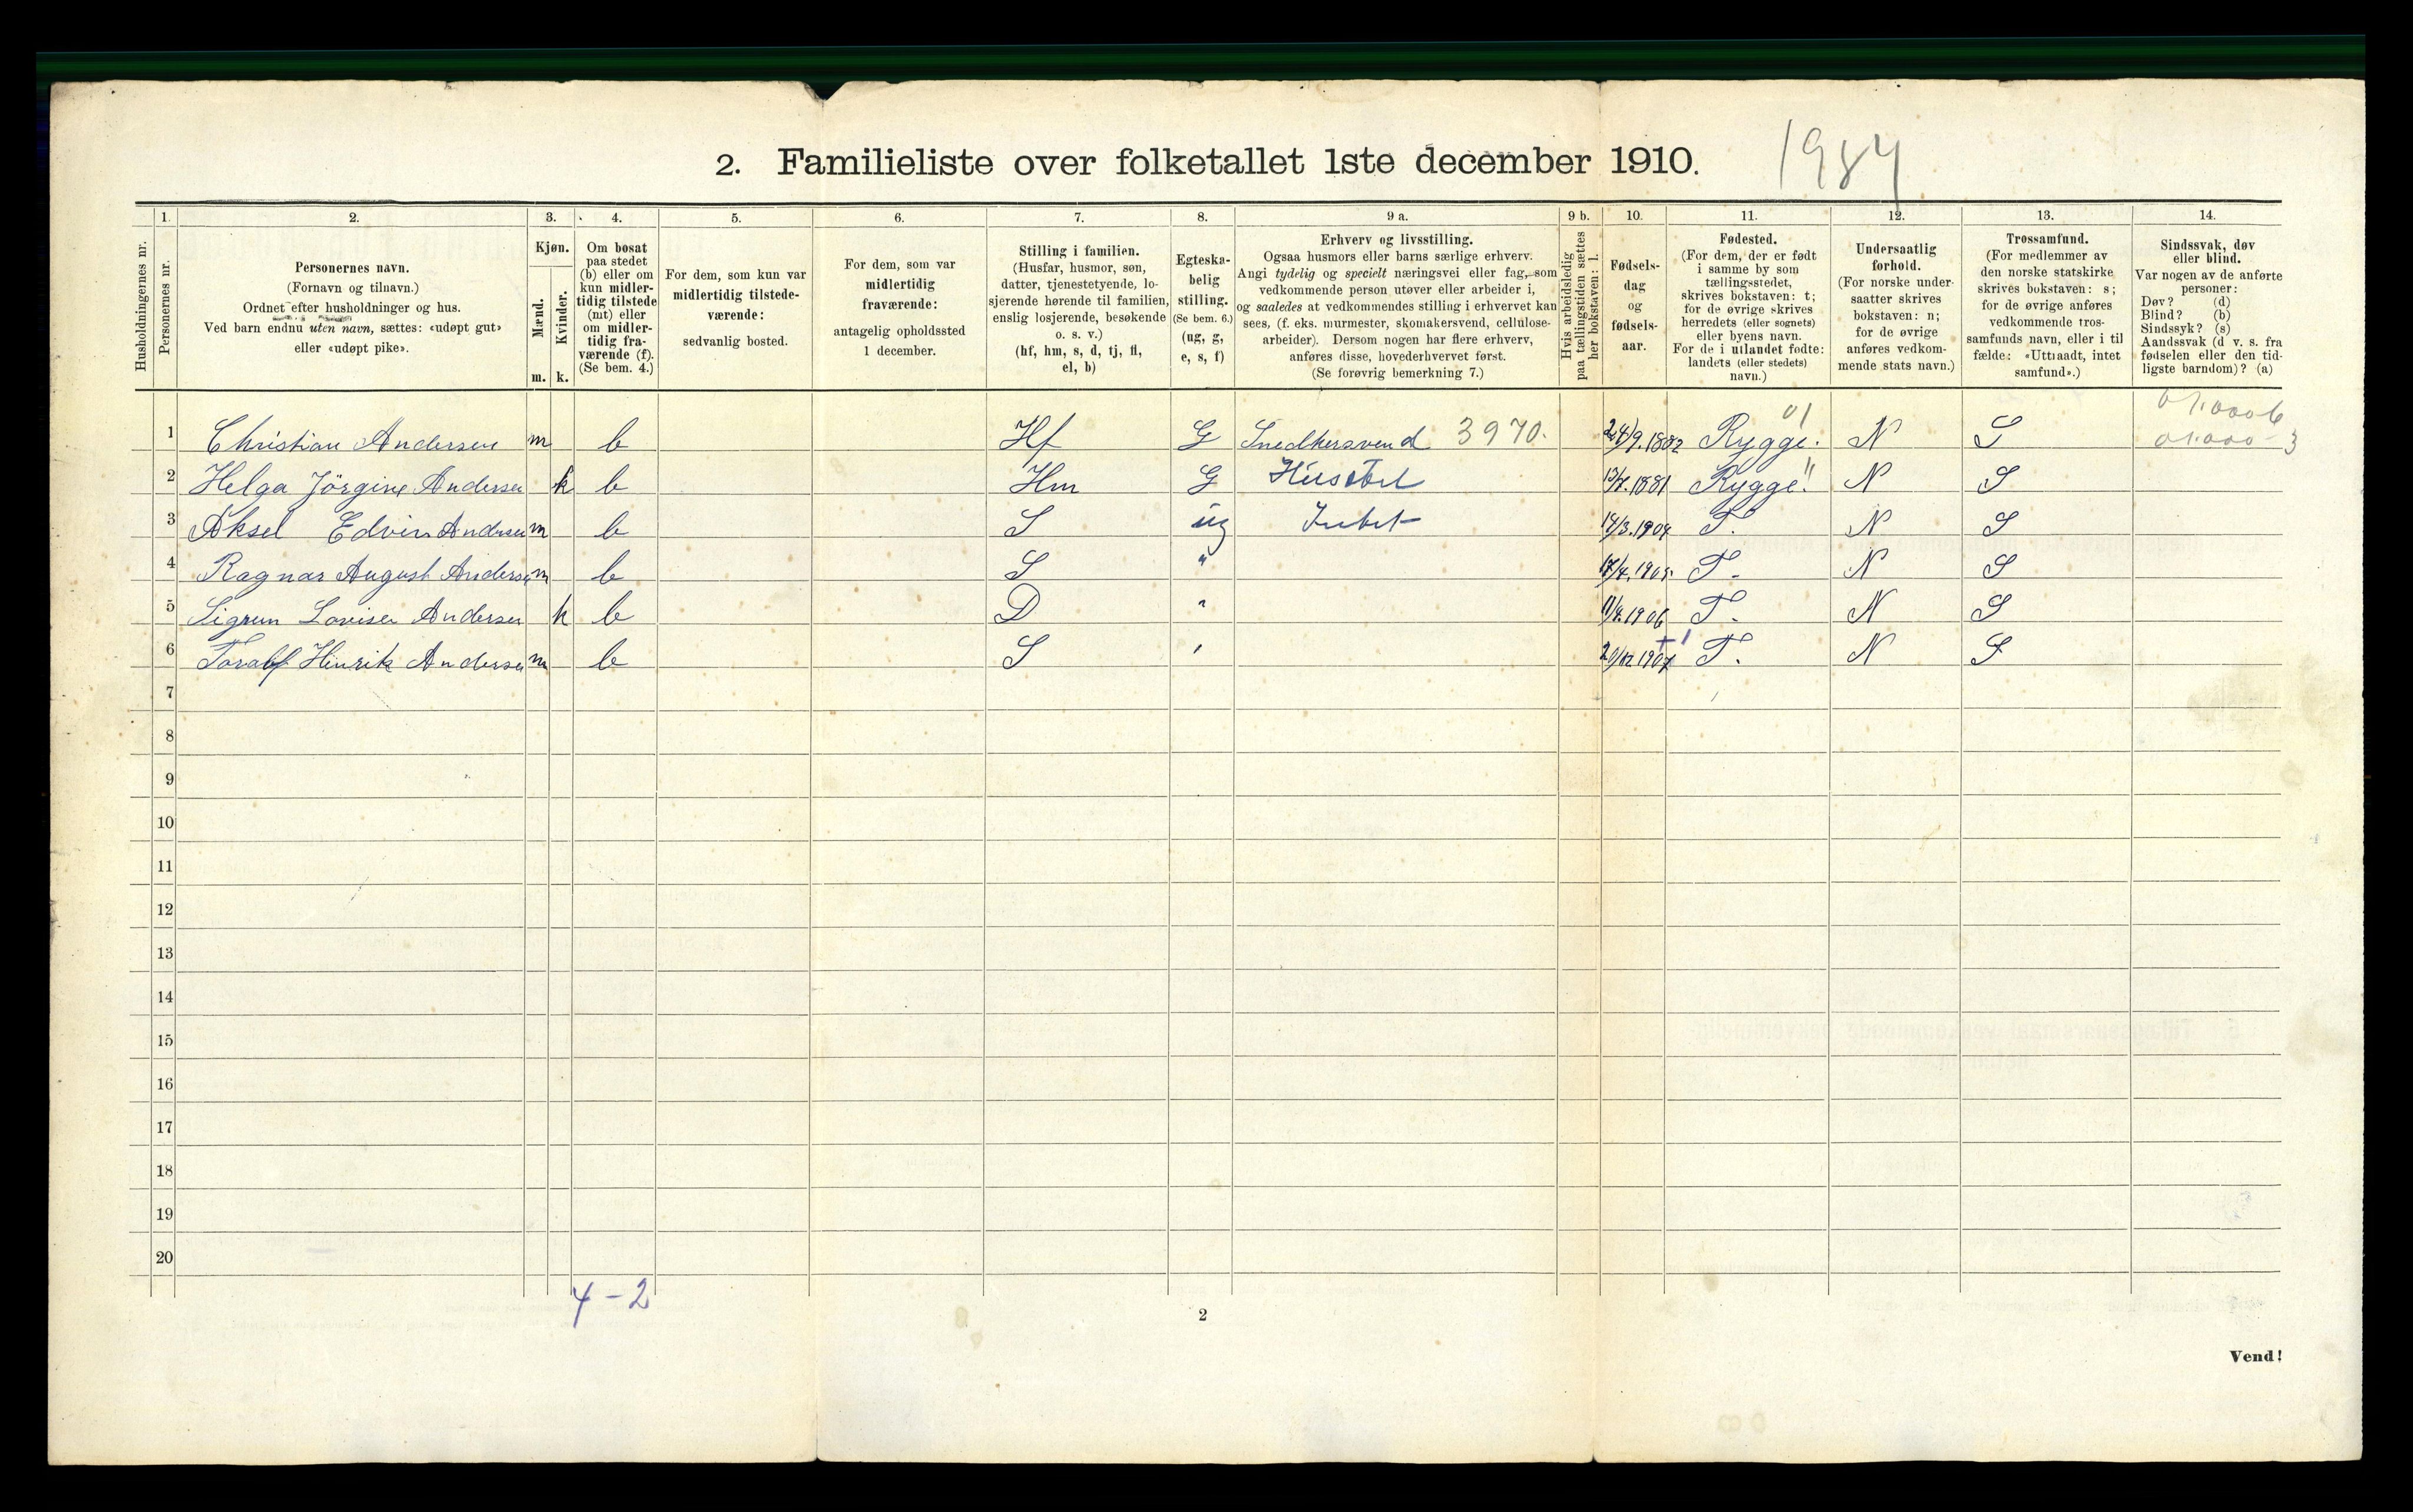 2. Familieliste over folketallet 1ste december 1910.
1984
Husholdningernes nr.
1.
Personernes nr.
2.
Personernes navn.
(Fornavn og tilnavn.)
Ordnet efter husholdninger og hus.
Ved barn endnu uten navn, sættes: «udøpt gut»
eller «udøpt pike».
3.
Kjøn.
Mænd.
m.
Kvinder.
k.
4.
Om bosat
paa stedet
(b) eller om
kun midler-
tidig tilstede
(mt) eller
om midler-
tidig fra-
værende (f).
(Se bem. 4.)
5.
For dem, som kun var
midlertidig tilstede-
værende:
sedvanlig bosted.
6.
For dem, som var
midlertidig
fraværende:
antagelig opholdssted
1 december.
7.
Stilling i familien.
(Husfar, husmor, søn,
datter, tjenestetyende, lo-
sjerende hørende til familien,
enslig losjerende, besøkende
o. s. v.)
(hf, hm, s, d, tj, fl,
el, b)
8.
Egteska-
belig
stilling.
(Se bem. 6.)
(ug, g,
e, s, f)
9 a.
Erhverv og livsstilling.
Ogsaa husmors eller barns særlige erhverv.
Angi tydelig og specielt næringsvei eller fag, som
vedkommende person utøver eller arbeider i,
og saaledes at vedkommendes stilling i erhvervet kan
sees, (f. eks. murmester, skomakersvend, cellulose-
arbeider). Dersom nogen har flere erhverv,
anføres disse, hovederhvervet først.
(Se forøvrig bemerkning 7.)
9 b.
Hvis arbeidsledig
paa tællingstiden sættes
her bokstaven: l.
10.
Fødsels-
dag
og
fødsels-
aar.
11.
Fødested.
(For dem, der er født
i samme by som
tællingsstedet,
skrives bokstaven: t;
for de øvrige skrives
herredets (eller sognets)
eller byens navn.
For de i utlandet fødte:
landets (eller stedets)
navn.)
12.
Undersaatlig
forhold.
(For norske under-
saatter skrives
bokstaven: n;
for de øvrige
anføres vedkom-
mende stats navn.)
13.
Trossamfund.
(For medlemmer av
den norske statskirke
skrives bokstaven: s;
for de øvrige anføres
vedkommende tros-
samfunds navn, eller i til-
fælde: «Uttraadt, intet
samfund».)
14.
Sindssvak, døv
eller blind.
Var nogen av de anførte
personer:
Døv? (d)
Blind? (b)
Sindssyk? (s)
Aandssvak (d v. s. fra
fødselen eller den tid-
ligste barndom)? (a)
1 Christian Andersen m b Hf G Snedkersvend 3970. 24/9.1882 Rygge. N S
2 Helga Jörgine Andersen k b Hm G Husstel 1881 Rygge. N S
3 Aksel Edvin Andersen m b S ug Intet 14/3.1904 T. N S
4 Ragnar August Andersen m b S " 17/4.1905. T. N S
5 Sigrun Lovise Andersen k b D " 1906 T. N S
6 Toralf Hinrik Andersen m b S " 20/12 1907 T. N S
7
8
9
10
11
12
13
14
15
16
17
18
19
20
4 - 2
2
Vend!